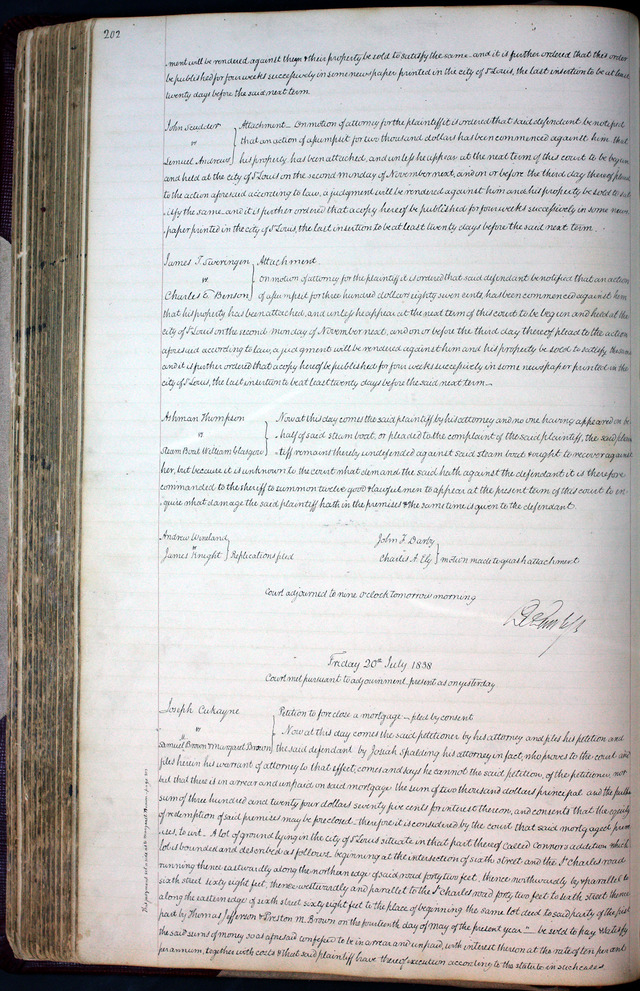 202
ment will be rendered against them & their property be sold to satisfy the same and it is further ordered that this order
be published for four weeks successively in some newspaper printed in the city of St Louis, the last insertion to be at least
twenty days before the said next term
John Scudder
vs
Lemuel Andrews
Attachment — On motion of attorney for the plaintiff it is ordered that said defendant be notified
that an action of assumpsit for two thousand dollars has been commenced against him, that
his property has been attached, and unless he appear at the next term of this court to be begun
and held at the city of St Louis on the second monday of November next, and on or before the third day thereof plead
to the action aforesaid according to law, a judgment will be rendered against him and his property be sold to sat
isfy the same, and it is further ordered that a copy hereof be published for four weeks successively in some news
paper printed in the city of St Louis, the last insertion to be at least twenty days before the said next term .
James T. Sweringen
vs
Charles E. Benson
Attachment.
On motion of attorney for the plaintiff it is ordered that said defendant be notified that an action
of assumpsit for three hundred dollars eighty seven cents, has been commenced against him
that his property has been attached, and unless he appear at the next term of this court to be begun and held at the
city of St Louis on the second monday of November next, and on or before the third day thereof plead to the action
aforesaid according to law, a judgment will be rendered against him and his property be sold to satisfy the same
and it is further ordered that a copy hereof be published for four weeks successively in some newspaper printed in the
city of St Louis, the last insertion to be at least twenty days before the said next term —
Ashman Thompson
vs
Steam Boat William Glasgow
Now at this day comes the said plaintiff by his attorney and no one having appeared on be
half of said steam boat, or pleaded to the complaint of the said plaintiff, the said plain
tiff remains thereby undefended against said steam boat & ought to recover against
her, but because it is unknown to the court what demand the said hath against the defendant it is therefore
commanded to the sheriff to summon twelve good & lawful men to appear at the present term of this court to en
quire what damage the said plaintiff hath in the premises & the same time is given to the defendant.
Andrew Wineland
vs
James Knight
Replications filed
John F. Darby
Charles A. Ely
motion made to quash attachment
Court adjourned to nine o'clock tomorrow morning
Friday 20th July 1838
Court met pursuant to adjournment present as on yesterday
Joseph Cukayne
vs
Samuel Brown & Margaret Brown
Petition to foreclose a mortgage — filed by consent
Now at this day comes the said petitioner by his attorney and files his petition and
the said defendant by Josiah Spalding his attorney in fact, who proves to the court and
files herein his warrant of attorney to that effect, comes and says he cannot the said petition, of the petitioner, not
but that there is in arrear and unpaid on said mortgage the sum of two thousand dollars principal and the further
sum of three hundred and twenty four dollars seventy five cents for interest thereon, and consents that the equity
of redemption of said premises may be foreclosed therefore it is considered by the court that said mortgaged prem
ises, to wit. A lot of ground lying in the city of St Louis situate in that part thereof called Connors addition which
lot is bounded and described as follows beginning at the intersection of sixth street and the St Charles road
running thence eastwardly along the northern edge of said road forty two feet, thence northwardly by & parallel to
sixth street sixty eight feet, thence westwardly and parallel to the St Charles road forty two feet to sixth street thence
along the eastern edge of sixth street sixty eight feet to the place of beginning the same lot deed to said party of the first
part by Thomas Jefferson & Preston M. Brown on the fourteenth day of May of the present year" — be sold to pay & satisfy
the said sums of money so as aforesaid confessed to be in arrear and unpaid, with interest thereon at the rate of ten per cent
per annum, together with costs & that said plaintiff have thereof execution according to the statute in such cases